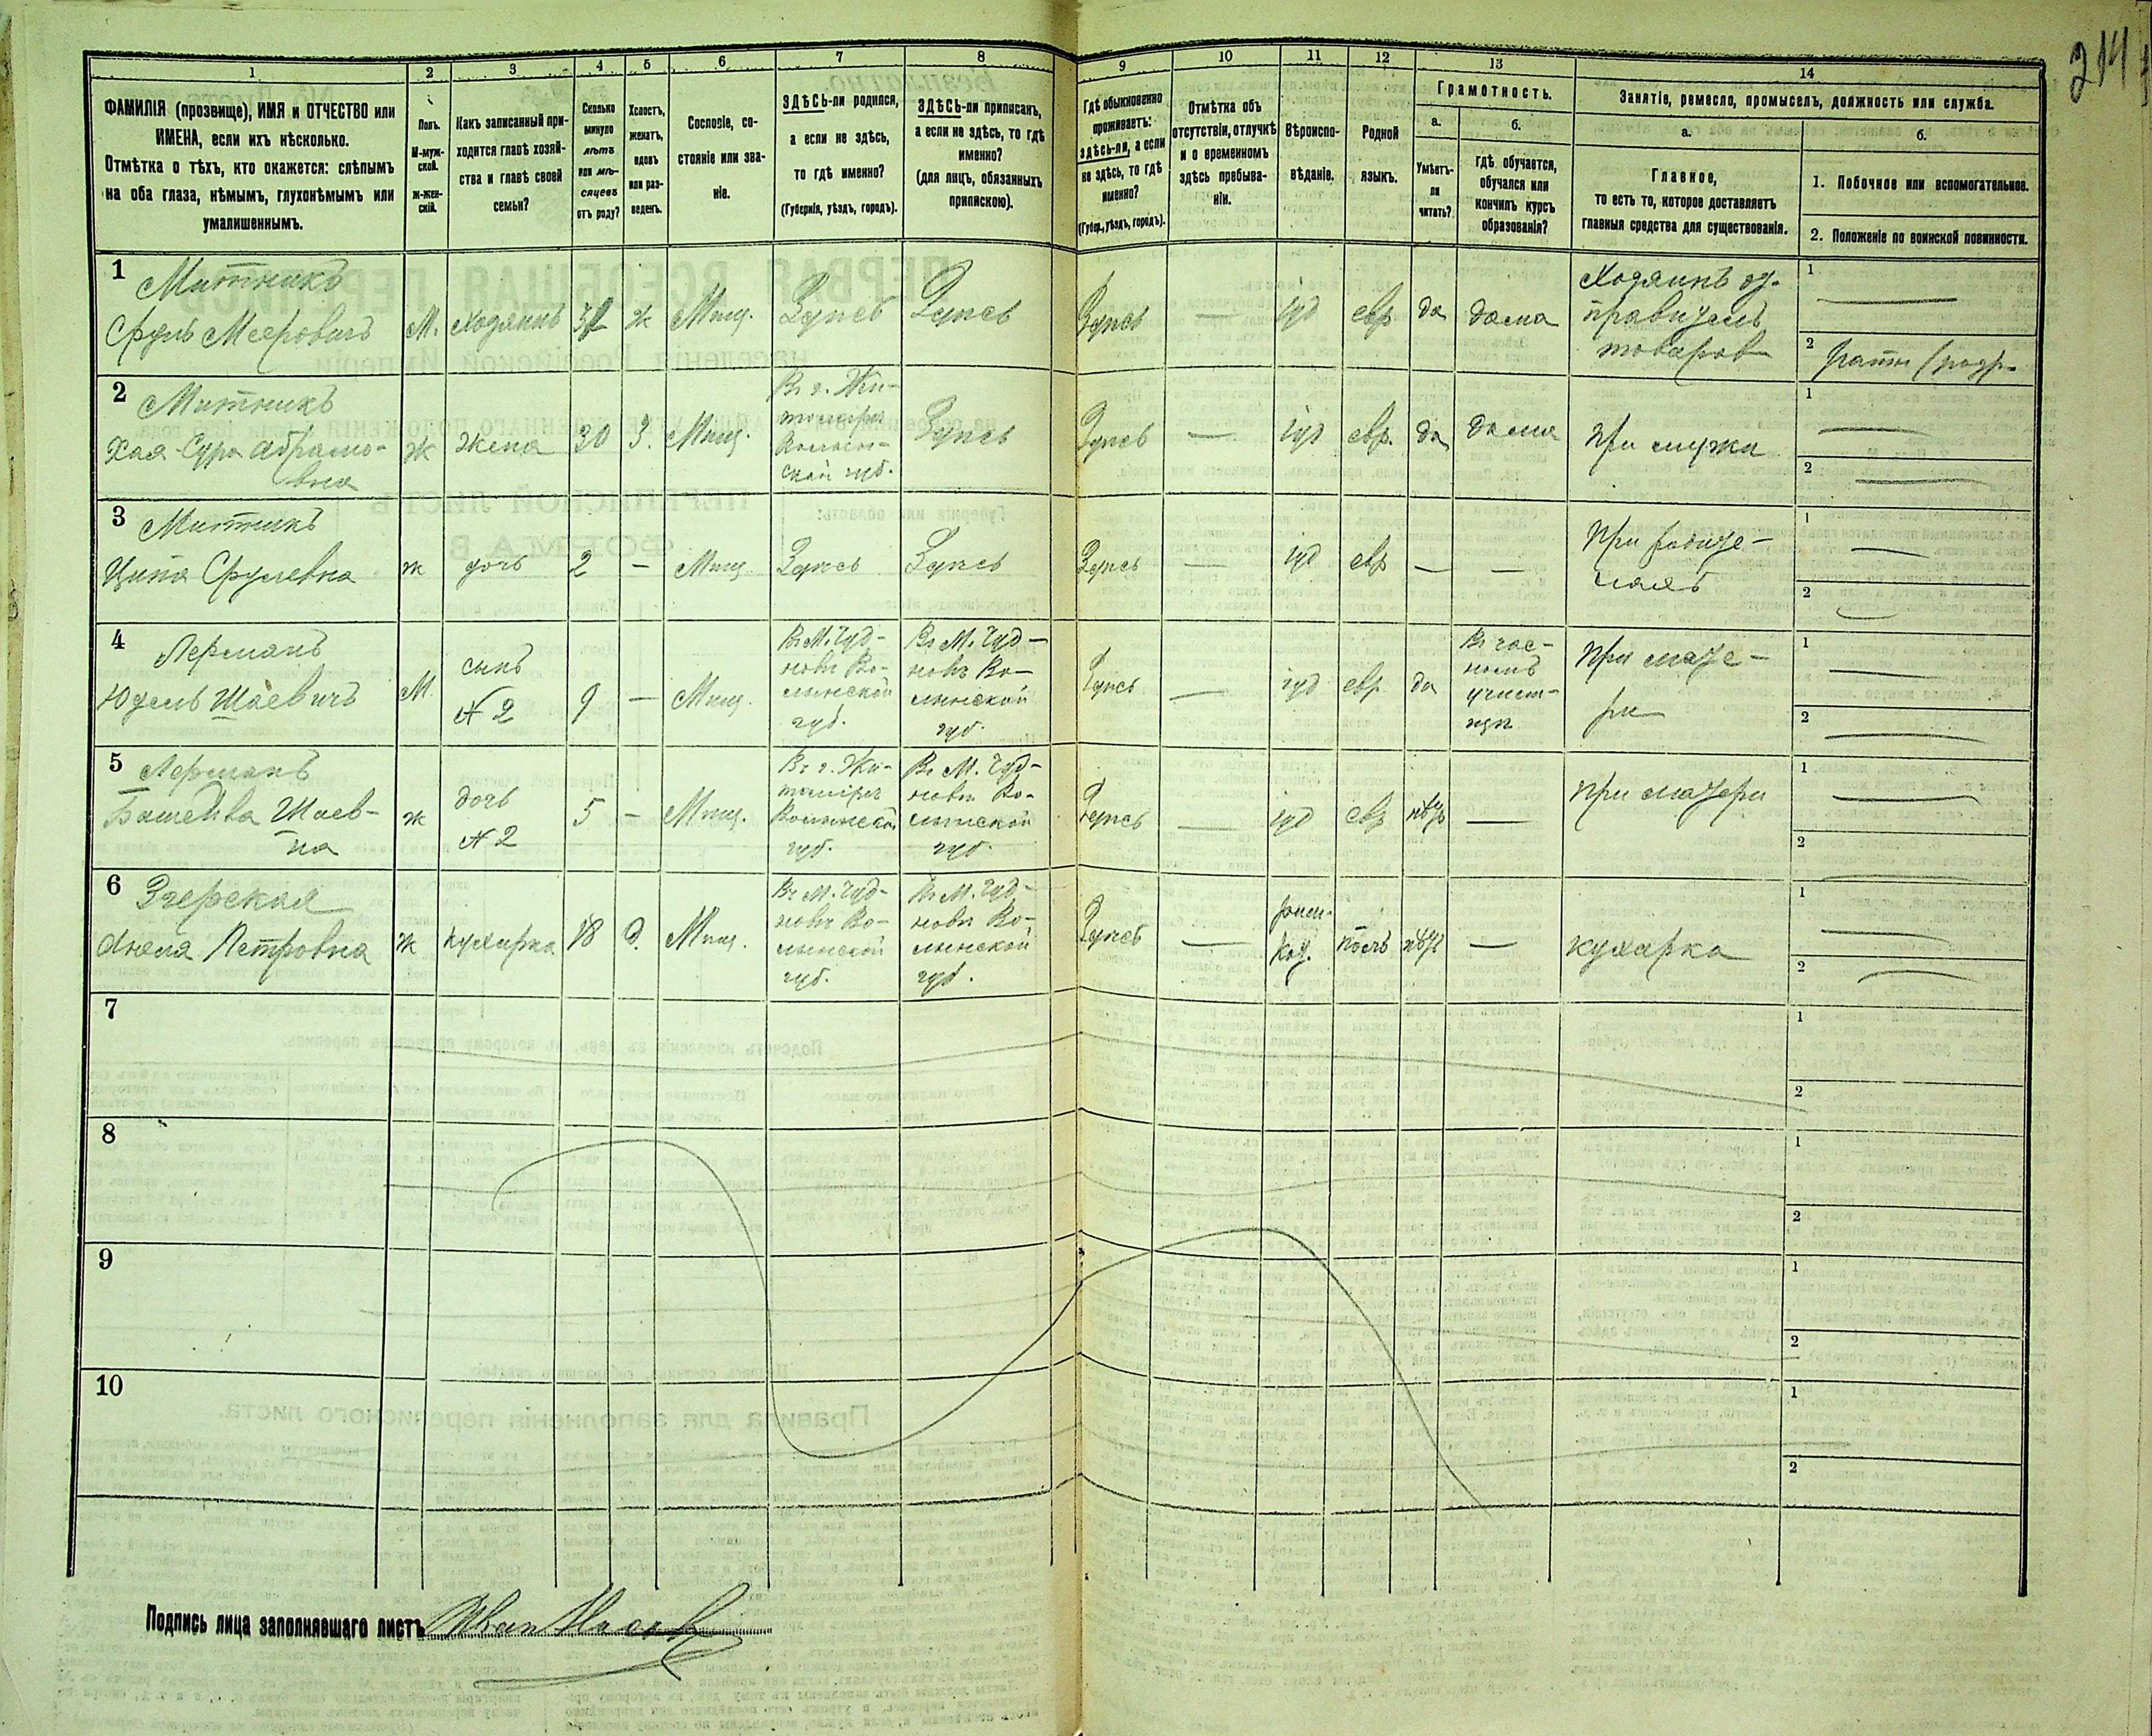 214
1
2
3
4
5
6
7
8
9
10
11
12
13
14
ФАМИЛІЯ (прозвище), ИМЯ и ОТЧЕСТВО или
ИМЕНА, если ихъ нѣсколько.
Отмѣтка о тѣхъ, кто окажется: слѣпымъ
на оба глаза, нѣмымъ, глухонѣмымъ или
умалишеннымъ.
Полъ.
М-муж-
ской.
Ж-жен-
скій.
Какъ записанный при-
ходится главѣ хозяй-
ства и главѣ своей
семьи?
Сколько
минуло
лѣтъ
или мѣ-
сяцевъ
отъ роду?
Холостъ,
женатъ,
вдовъ
или раз-
веденъ.
Сословіе, со-
стояніе или зва-
ніе.
ЗДѢСЬ-ли родился,
а если не здѣсь,
то гдѣ именно?
(Губернія, уѣздъ, городъ).
ЗДѢСЬ-ли приписанъ,
а если не здѣсь, то гдѣ
именно?
(для лицъ, обязанныхъ
припискою).
Гдѣ обыкновенно
проживаетъ:
здѣсь-ли, а если
не здѣсь, то гдѣ
именно?
(Губер., уѣздъ, городъ).
Отмѣтка объ
отсутствіи, отлучкѣ
и о временномъ
здѣсь пребыва-
ніи.
Вѣроиспо-
вѣданіе.
Родной
языкъ.
Грамотность.
а.
Умѣетъ-
ли
читать?
б.
гдѣ обучается,
обучался или
кончилъ курсъ
образованія?
Занятіе, ремесло, промыселъ, должность или служба.
а.
Главное,
то есть то, которое доставляетъ
главныя средства для существованія.
б.
1. Побочное или вспомогательное.
2. Положеніе по воинской повинности.
1 Митникъ
Сруль Мееровичъ М. Хозяинъ ж Мѣщ. Здѣсь Здѣсь Здѣсь — іуд евр да дома
товаров
1 —
2
2 Митникъ
Хая-Сура Абрамо-
вна
ж жена 30 З. Мѣщ.
Въ г. Жи-
томірѣ
Волын-
ской губ.
Здѣсь Здѣсь — іуд евр. да дома при мужѣ
1 —
2 —
3 Митникъ
Ципа Срулевна ж дочь 2 — Мѣщ. Здѣсь Здѣсь Здѣсь — іуд евр — —
При родите-
ляхъ
1 —
2 —
4 Лерманъ
Юдель Шаевичъ М.
сынъ
№ 2
9 — Мѣщ.
Въ М. Чуд-
новѣ Во-
лынской
губ.
Въ М. Чуд-
новѣ Во-
лынской
губ.
Здѣсь — іуд евр да
При мате-
ри
1 —
2 —
5 Лерманъ
Башейва Шаев-
на
ж
дочь
№ 2
5 — Мѣщ.
Въ г. Жи-
томірѣ
Волынской
губ.
Въ М. Чуд-
новѣ Во-
лынской
губ.
Здѣсь — іуд евр нѣтъ — при матери
1 —
2 —
6 Згерская
Анеля Петровна ж кухарка 18 д. Мѣщ.
Въ М. Чуд-
новѣ Во-
лынской
губ.
Въ М. Чуд-
новѣ Во-
лынской
губ.
Здѣсь —
рим.
кат.
поль нѣтъ — кухарка
1 —
2 —
7
1
2
8
1
2
9
1
2
10
1
2
Подпись лица заполнявшаго листъ